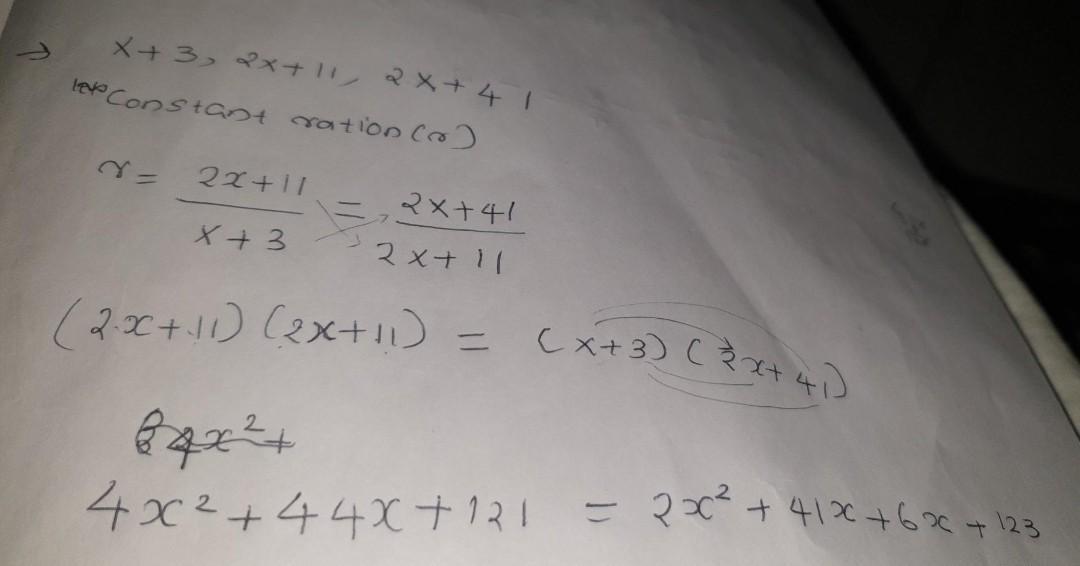 → x+3, 2x+11, 2x+41
Constant ration (r)
r = 2x+11 / x+3 = 2x+41 / 2x+11
(2x+11) (2x+11) = (x+3) (2x+41)
4x²+
4x²+44x+121 = 2x²+41x+6x+123